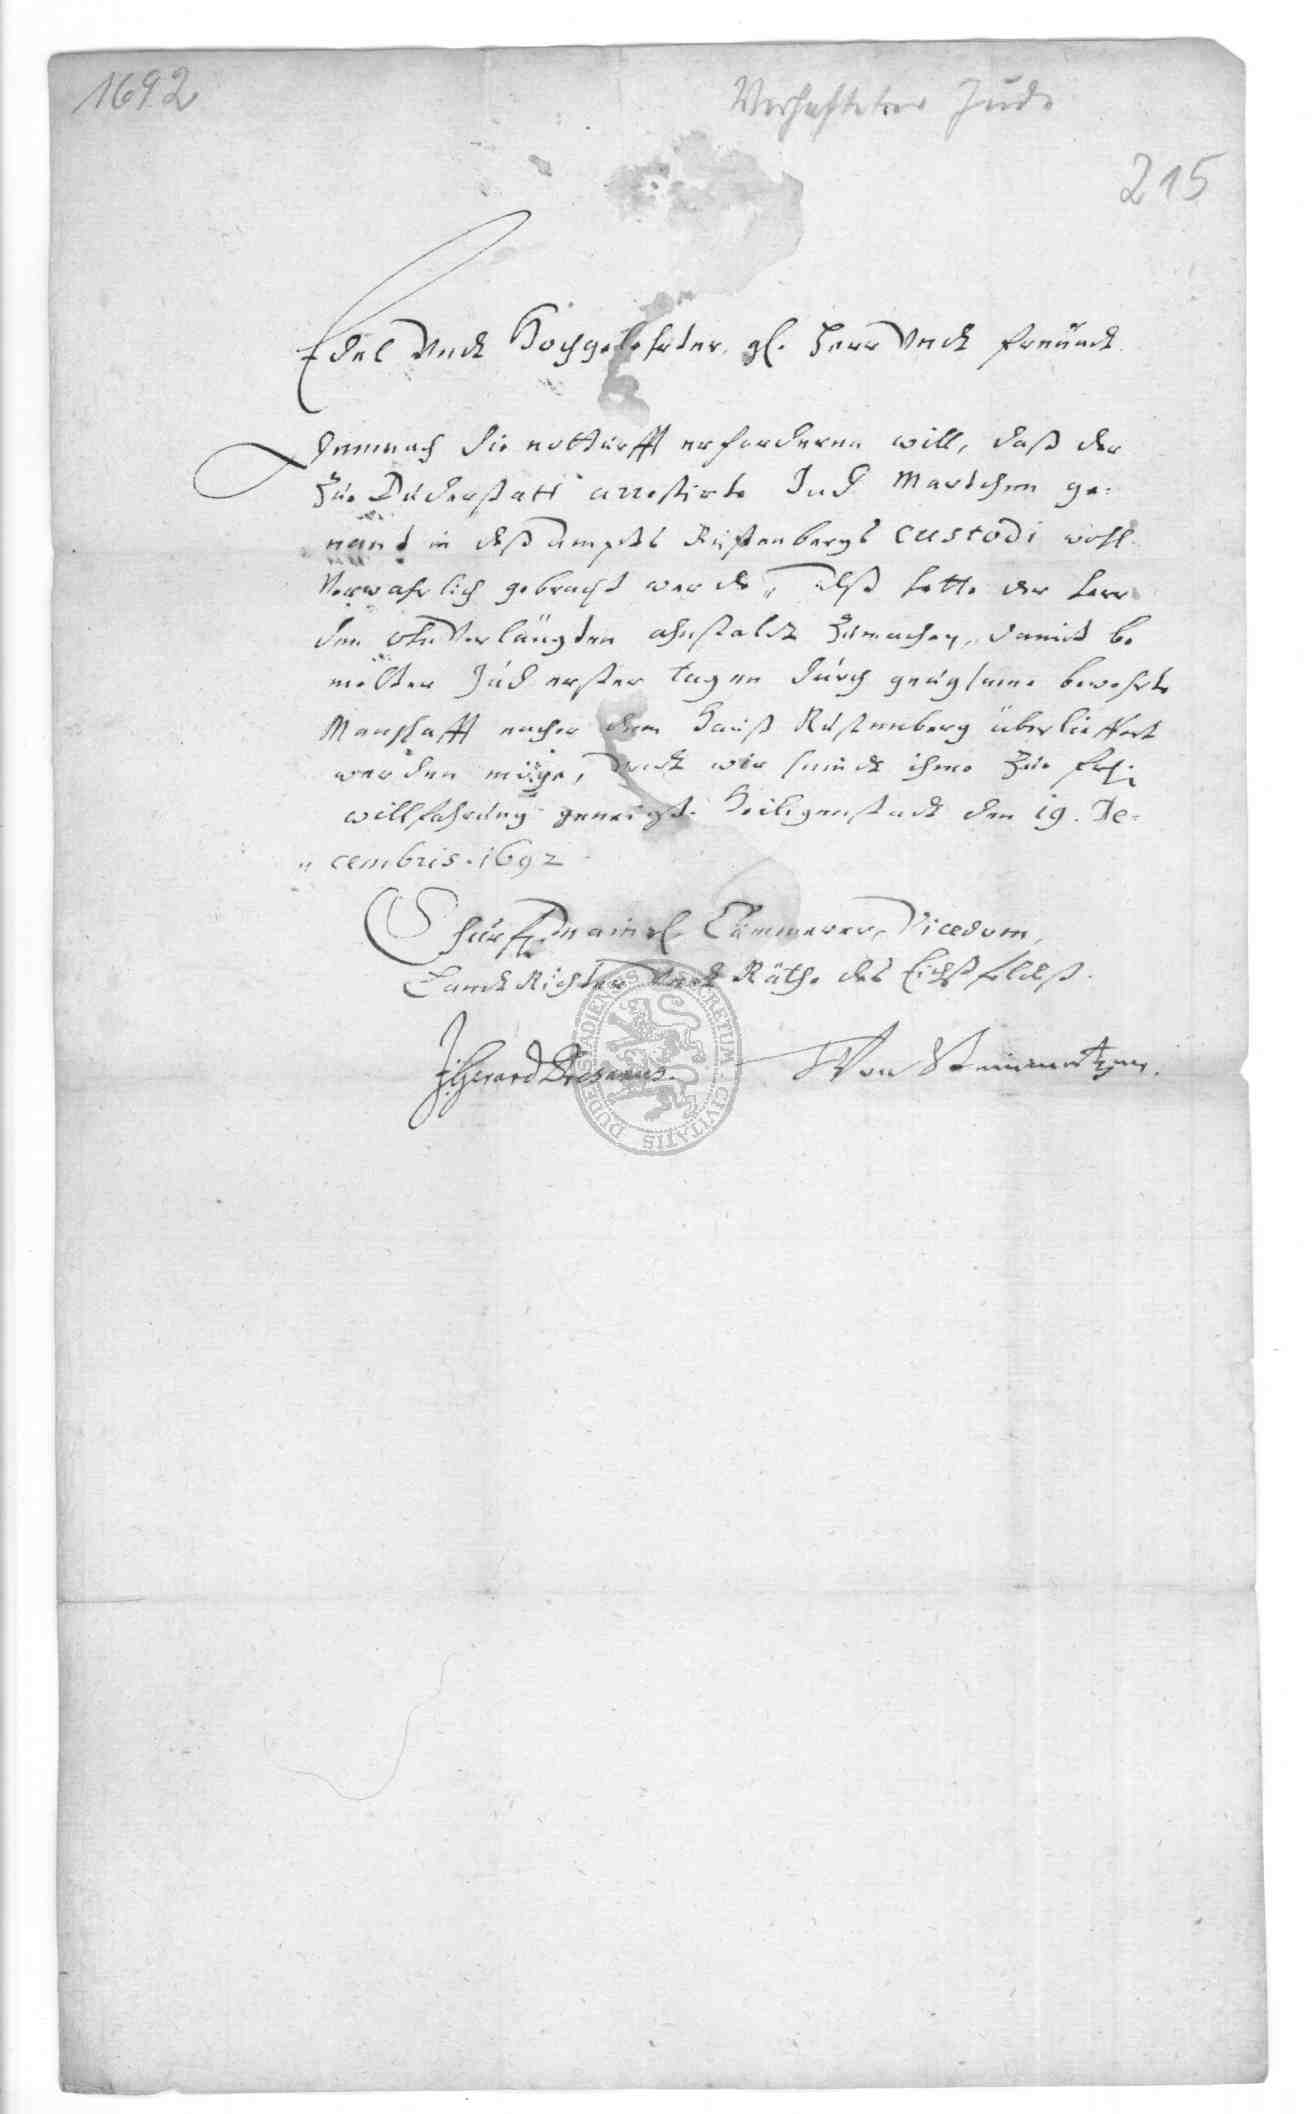 1692
Verhafteter Jude
215
Edel Undt Hochgelehrter, gl. Herr Undt freündt
Demnach die notturfft erforderen will, daß der
Zue Duderstatt arrestirte Jud Martchen ge-
nant in deß ampts Rustenbergs custodi wohl
Verwahrlich gebracht werde, Alß hette der herr
den ohnVerlängten ahnstaldt Zumachen, damit be
melter Jud erster tagen durch gnugsame bewehrte
Manschafft nacher dem Hauß Rustenberg überlieffert
werden möge, Undt wir seindt ihme Zue
willfahrung geneigt. Heiligenstadt den 19. De-
cembris. 1692
Churf. Maintz. Cämmerer, Vicedom,
Landt Richter Undt Räthe des Eichßfeldtß.
Gerard
Von
SECRETUM CIVITATIS DUDERSTADIENSIS